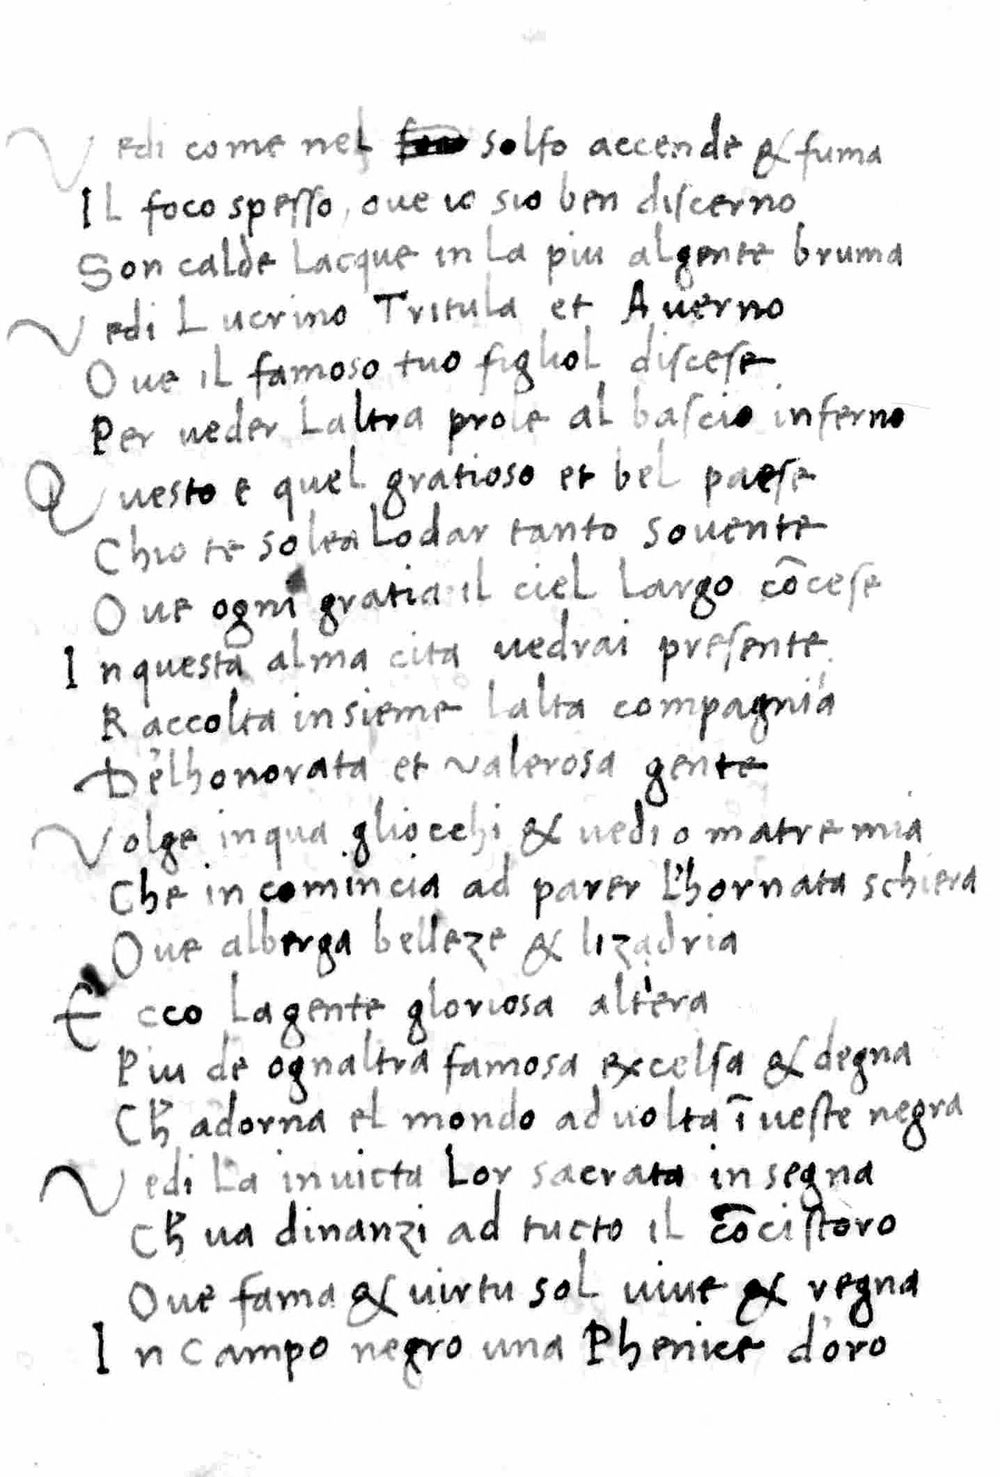 Vedi come nel solfo accende & fuma
Il foco spesso, oue io sio ben discerno
Son calde lacque in la piu algente bruma
Vedi Lucrino Tritula et Auerno
Oue il famoso tuo figliol discese
Per ueder laltra prole al bascio inferno
Questo e quel gratioso et bel paese
Chio te solea lodar tanto souente
Oue ogni gratia il ciel largo cõcese
In questa alma cita uedrai presente
Raccolta insieme lalta compagnia
Delhonorata et valerosa gente
Volge inqua gliocchi & uedi o matre mia
Che incomincia ad parer l'hornata schiera
Oue alberga belleze & lizadria
Ecco la gente gloriosa altera
Piu de ognaltra famosa excelsa & degna
Ch̃ adorna el mondo aduolta ĩ ueste negra
Vedi la inuicta lor sacrata insegna
Ch̃ ua dinanzi ad tucto il cõcistoro
Oue fama & uirtu sol uiue & regna
In campo negro una Phenice d'oro